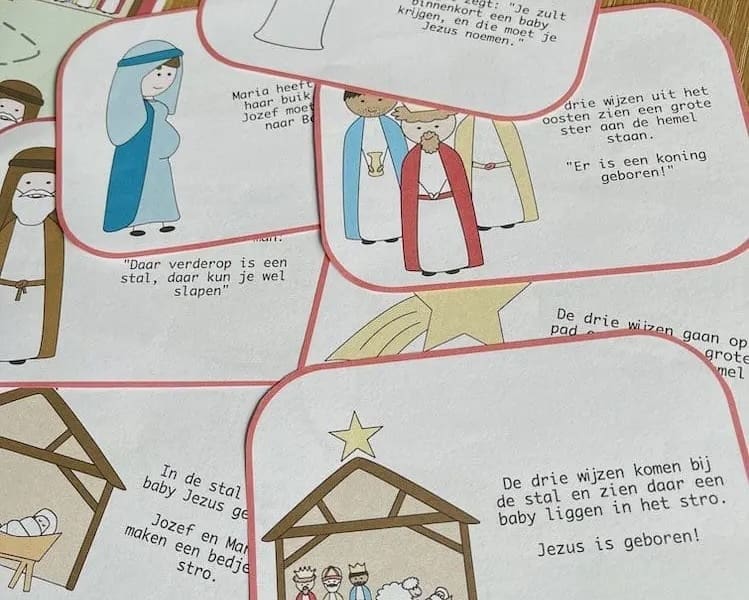 zegt: "Je zult
binnenkort een baby
krijgen, en die moet je
Jezus noemen."
Maria heeft
haar buik
Jozef
naar
drie wijzen uit het
oosten zien een grote
ster aan de hemel
staan.
"Er is een koning
geboren!"
"Daar verderop is een
stal, daar kun je wel
slapen"
De drie wijzen gaan op
pad
grote
In de stal
baby Jezus
Jozef en
maken een
stro.
De drie wijzen komen bij
de stal en zien daar een
baby liggen in het stro.
Jezus is geboren!